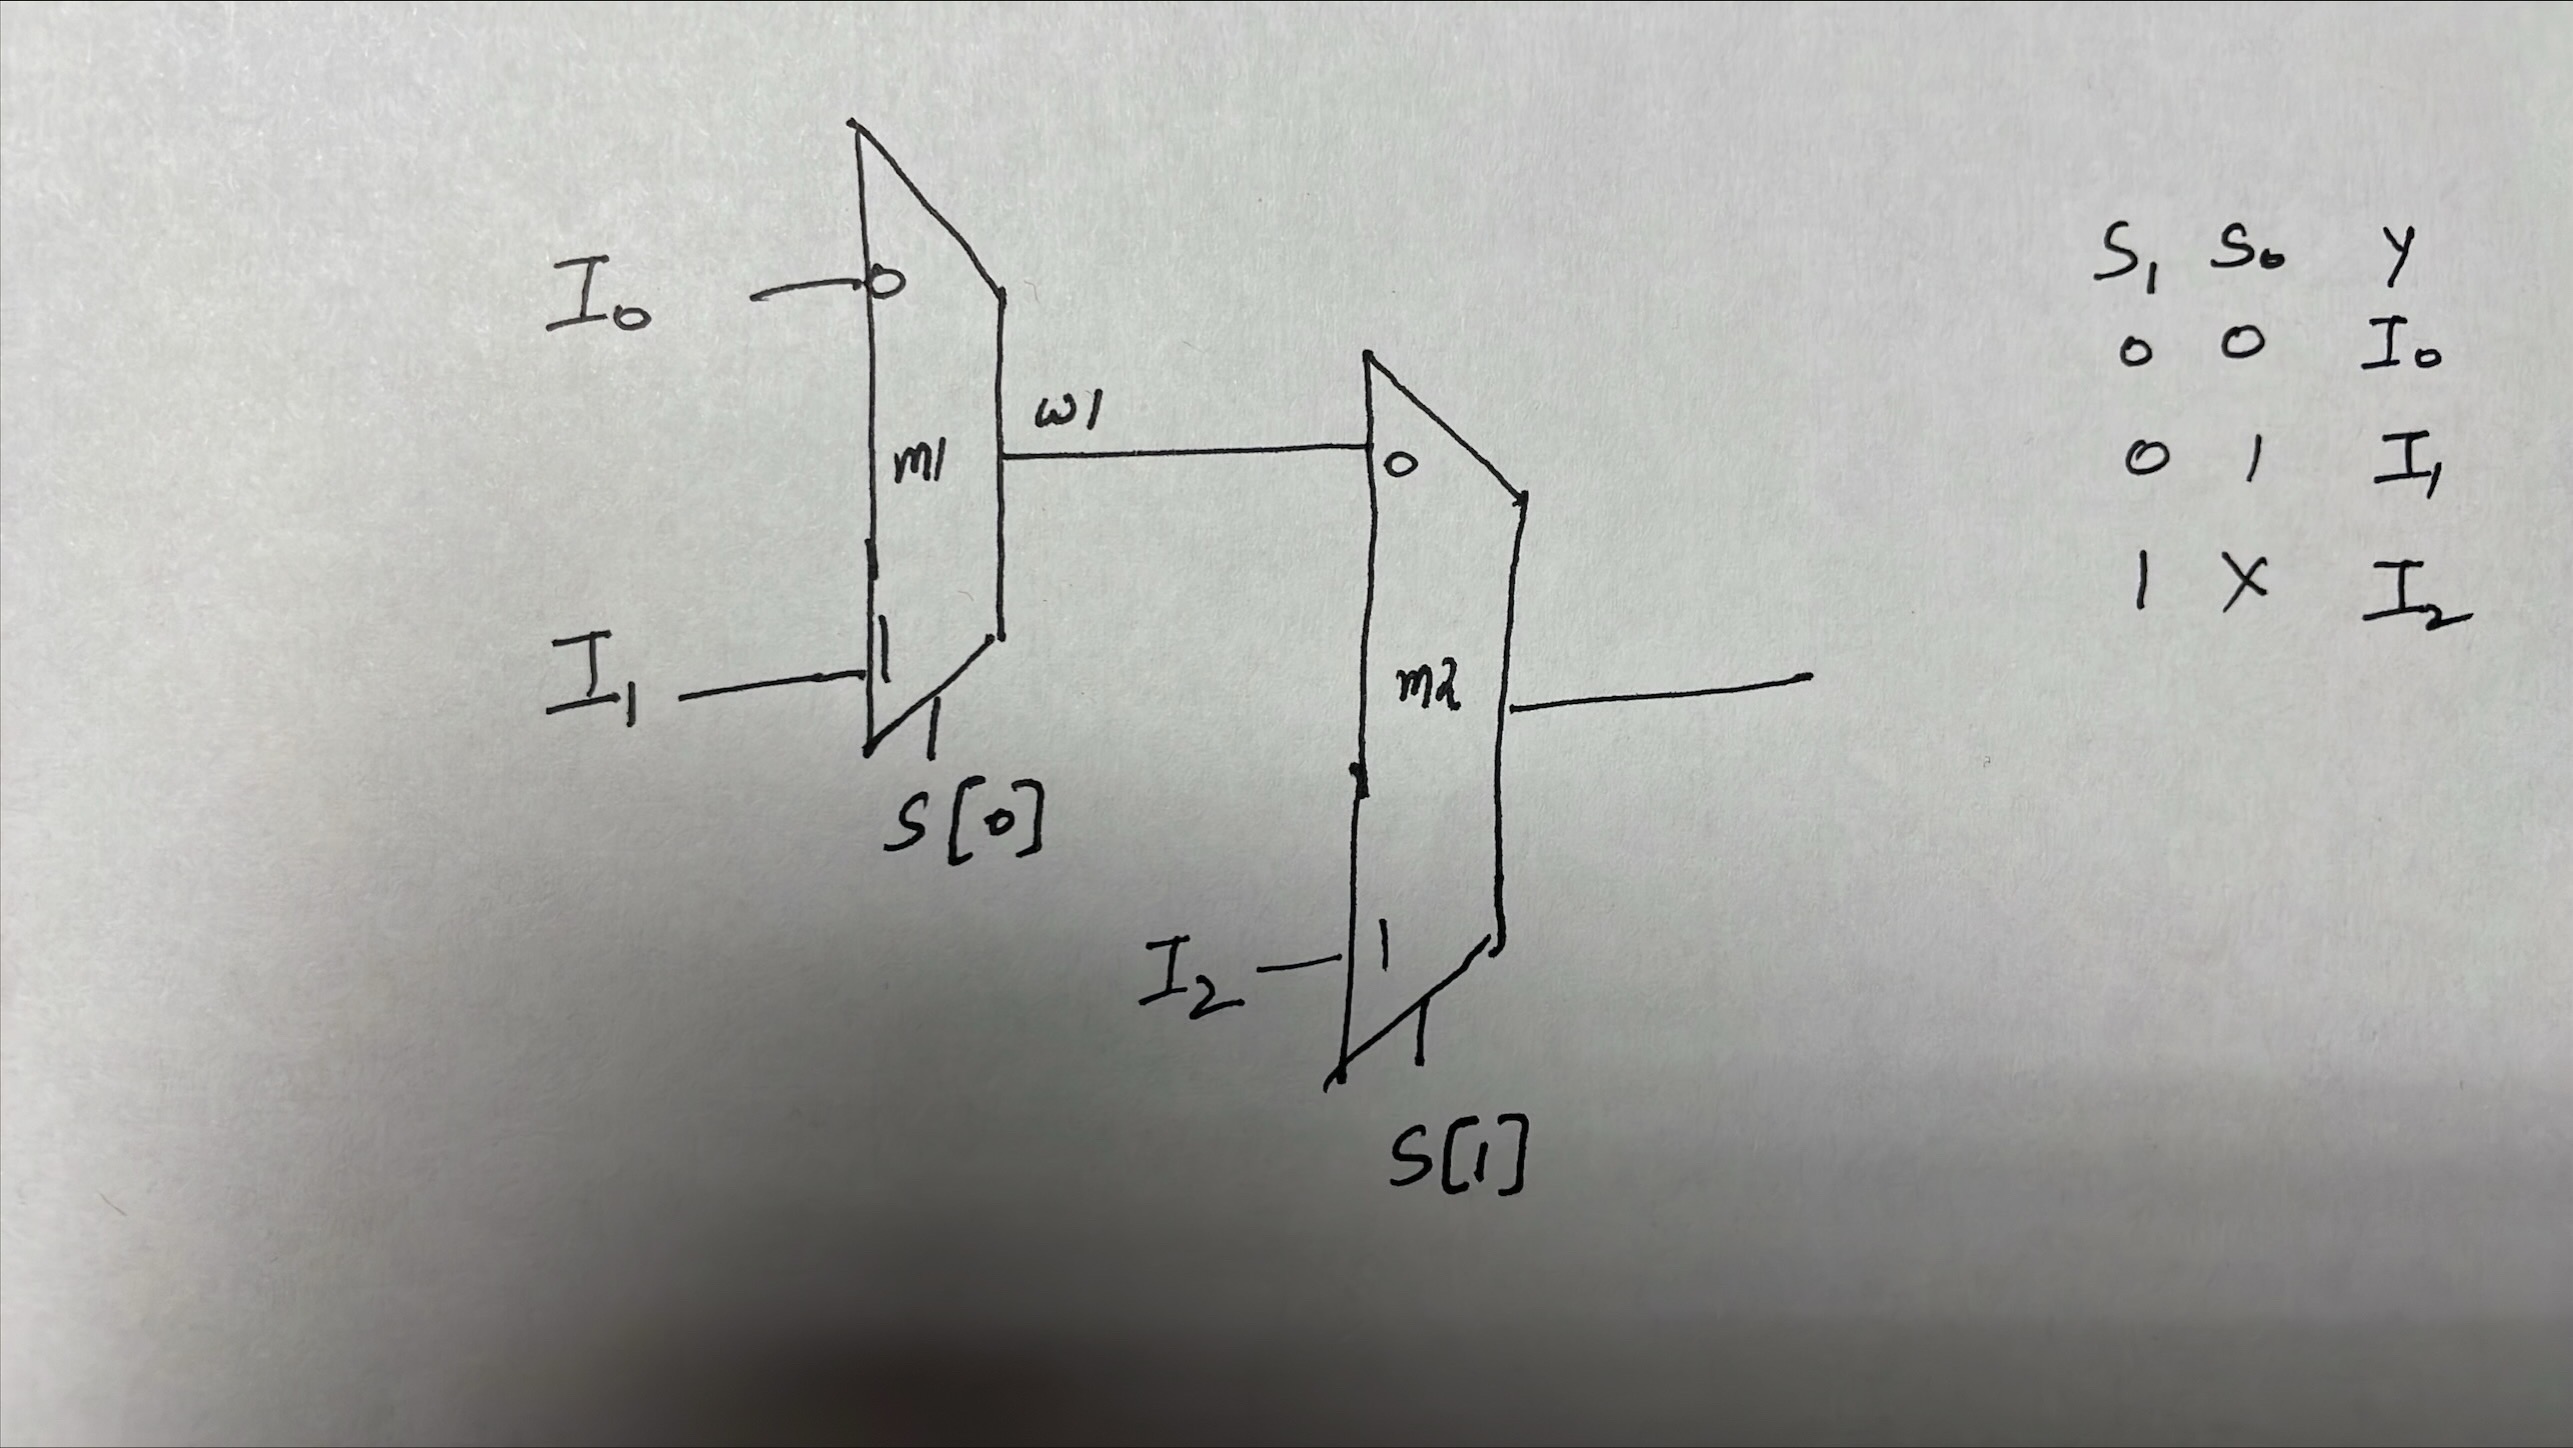 I₀
0
m1
w1
I₁
1
S[0]
0
m2
I₂
1
S[1]
S₁ S₀ Y
0 0 I₀
0 1 I₁
1 X I₂